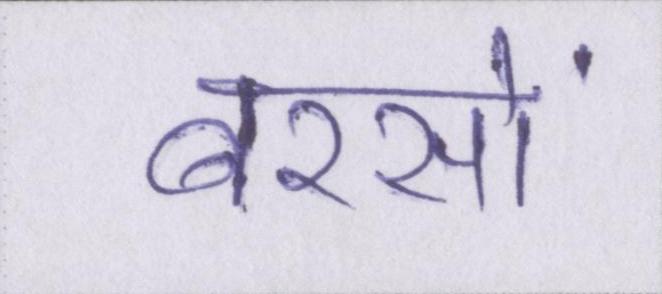 बरसों